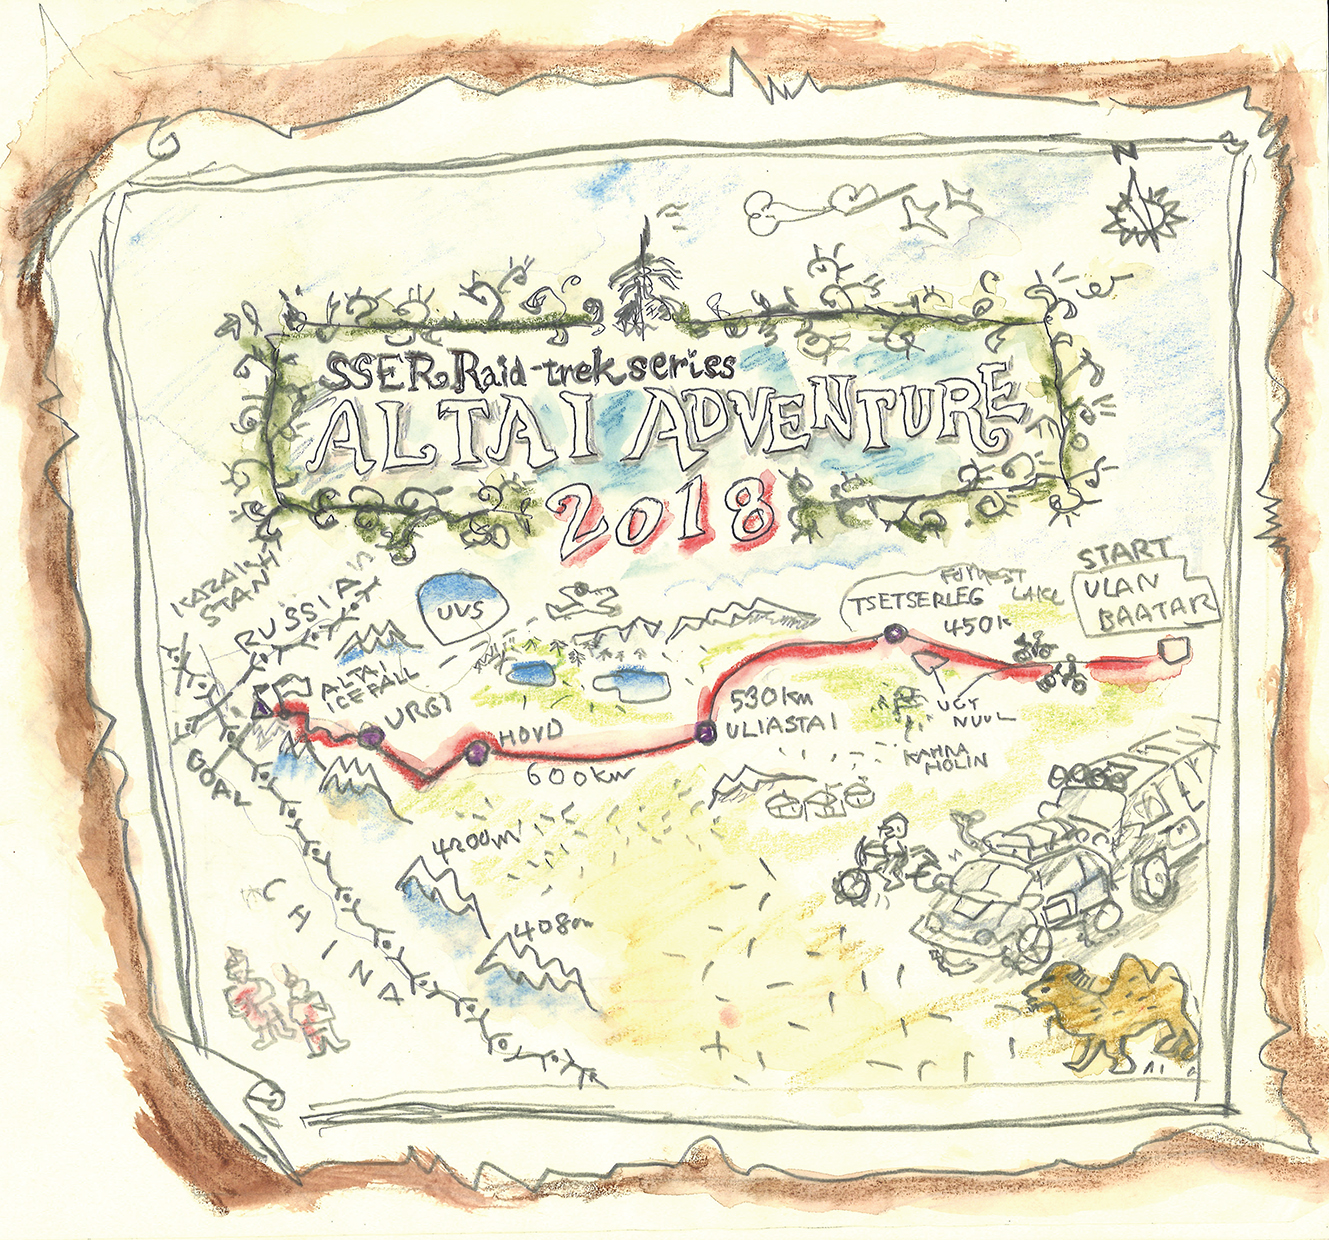 N
SSER Raid-trek series
ALTAI ADVENTURE
2018
KAZAKH
STAN
RUSSIA
UVS
ALTAI
ICEFALL
URGI
HOVD
600km
530km
ULIASTAI
TSETSERLEG
LAKE
450k
START
ULAN
BAATAR
UGY
NUUL
HOLIN
GOAL
4200m
408m
CHINA